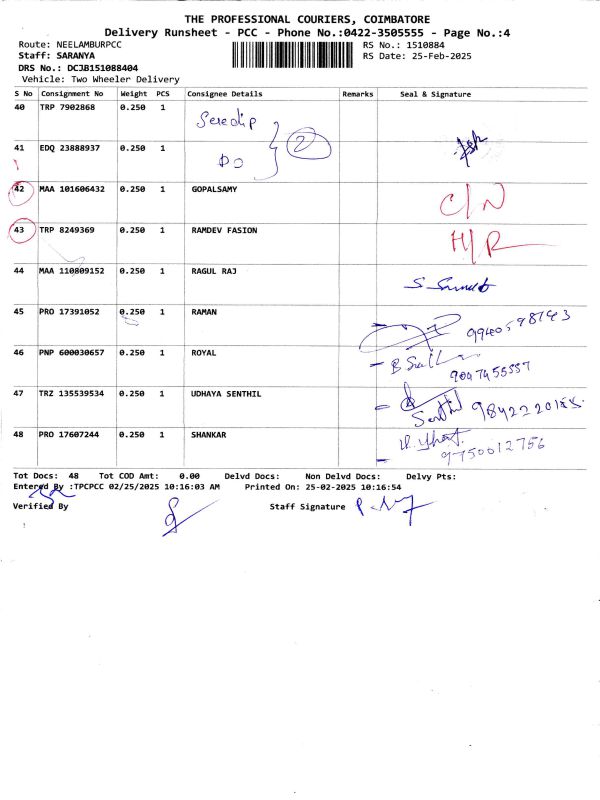 THE PROFESSIONAL COURIERS, COIMBATORE
Delivery Runsheet - PCC - Phone No.:0422-3505555 - Page No.:4
Route: NEELAMBURPCC RS No.: 1510884
Staff: SARANYA RS Date: 25-Feb-2025
DRS No.: DCJB151088404
Vehicle: Two Wheeler Delivery
S No Consignment No Weight PCS Consignee Details Remarks Seal & Signature
40 TRP 7902868 0.250 1
41 EDQ 23888937 0.250 1 DO 2
42 MAA 101606432 0.250 1 GOPALSAMY C/N
43 TRP 8249369 0.250 1 RAMDEV FASION H/R
44 MAA 110809152 0.250 1 RAGUL RAJ
45 PRO 17391052 0.250 1 RAMAN
46 PNP 600030657 0.250 1 ROYAL 9047455557
47 TRZ 135539534 0.250 1 UDHAYA SENTHIL Senthil
48 PRO 17607244 0.250 1 SHANKAR 9750012756
Tot Docs: 48 Tot COD Amt: 0.00 Delvd Docs: Non Delvd Docs: Delvy Pts:
Entered By :TPCPCC 02/25/2025 10:16:03 AM Printed On: 25-02-2025 10:16:54
Verified By Staff Signature